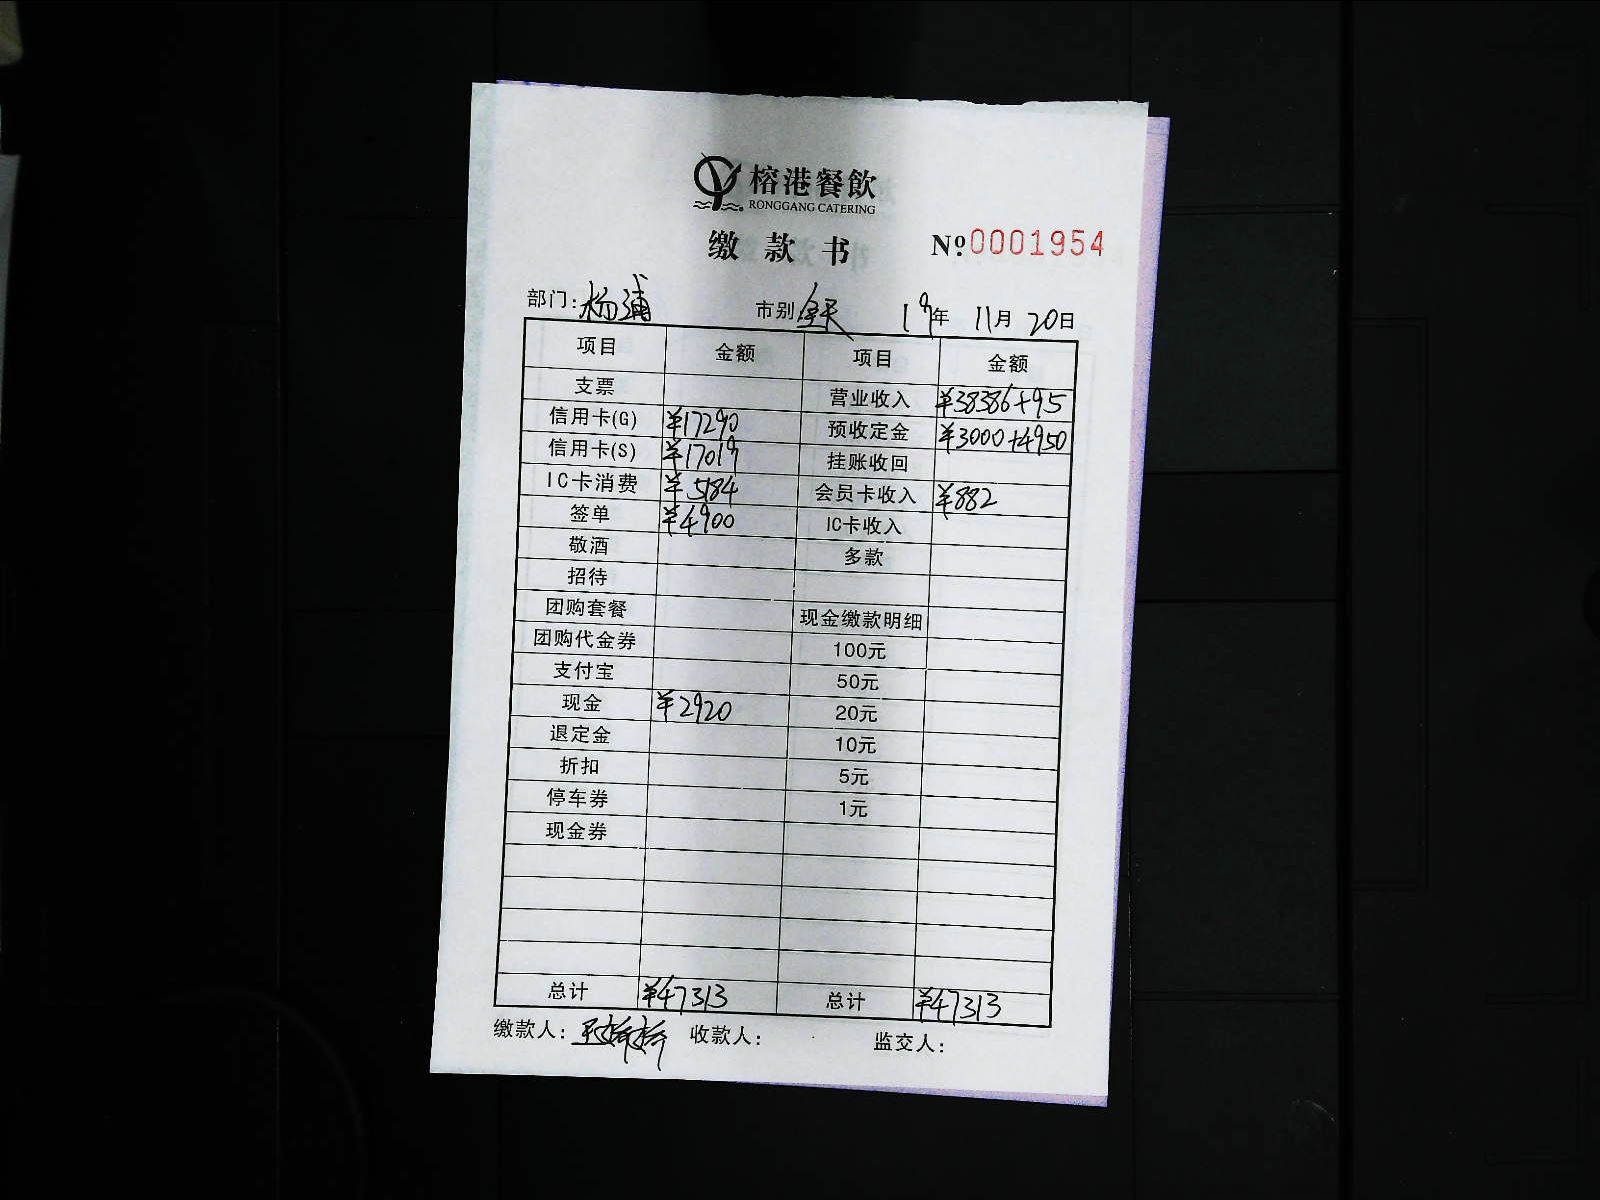 榕港餐飲
RONGGANG CATERING
缴款书 №0001954
部门:杨浦 市别 全天 19年 11月 20日
项目 金额 项目 金额
支票 营业收入 ¥38386+95
信用卡(G) ¥17290 预收定金 ¥3000+4950
信用卡(S) ¥17019 挂账收回
IC卡消费 ¥5184 会员卡收入 ¥882
签单 ¥4900 IC卡收入
敬酒 多款
招待
团购套餐 现金缴款明细
团购代金券 100元
支付宝 50元
现金 ¥2920 20元
退定金 10元
折扣 5元
停车券 1元
现金券
总计 ¥47313 总计 ¥47313
缴款人: 收款人: 监交人: